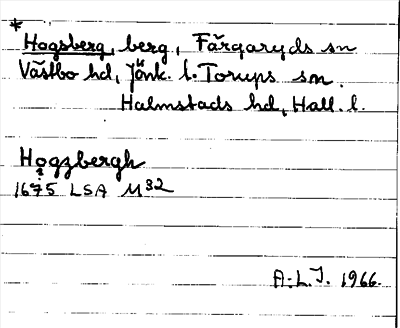 *
Hogsberg, berg, Färgaryds sn
Västbo hd, Jönk. l. Torups sn.
Halmstads hd, Hall. l.
Hogzbergh
1675 LSA M32
A.L.J. 1966.